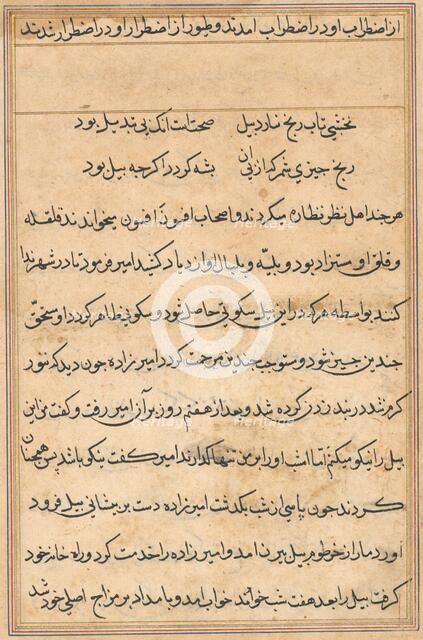 از اضطراب او در اضطراب آمدند و طیور از اضطرار او در اضطرار شدند
نخشبی تاب رنج نارد پیل صحتست آنک بی تبدیل بود
رنج چیزی شمر که از پی آن پشه گردد اگرچه پیل بود
هر چند اهل نظر نظاره میکردند و اصحاب افسون افسون میخواندند قلقله
و قلق او متزاید بود و بلیّه و بلبال او ازدیاد کشید امیر فرمود تا در شهر ندا
کنند بواسطه هر که در این پیل سکوتی حاصل شود و سکونی ظاهر گردد او مستحقّ
چندین چیز شود و مستوجب چندین مرحمت گردد امیرزاده چون دید که تنور
گرم شد در بند زدن کرده شد و بعد از هفتم روز بر آن امیر رفت و گفت من این
پیل را نیکو میکنم اما امشب او را بر من تنها گذارند امیر گفت نیکو باشد پس همچنان
کردند چون پاسی از شب بگذشت امیرزاده دست بر پیشانی پیل فرود
آورد مار از خرطوم پیل بیرون آمد و امیرزاده را خدمت کرد و راه خانه خود
گرفت پیل را بعد هفت شب خواند خواب آمد و بامداد بر مزاج اصلی خود شد
Heritage